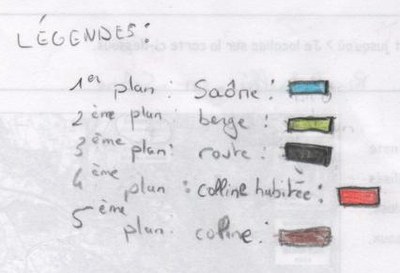 LÉGENDES:
1er plan: Saône:
2ème plan: berge:
3ème plan: route:
4ème plan: colline habitée:
5ème plan: colline: